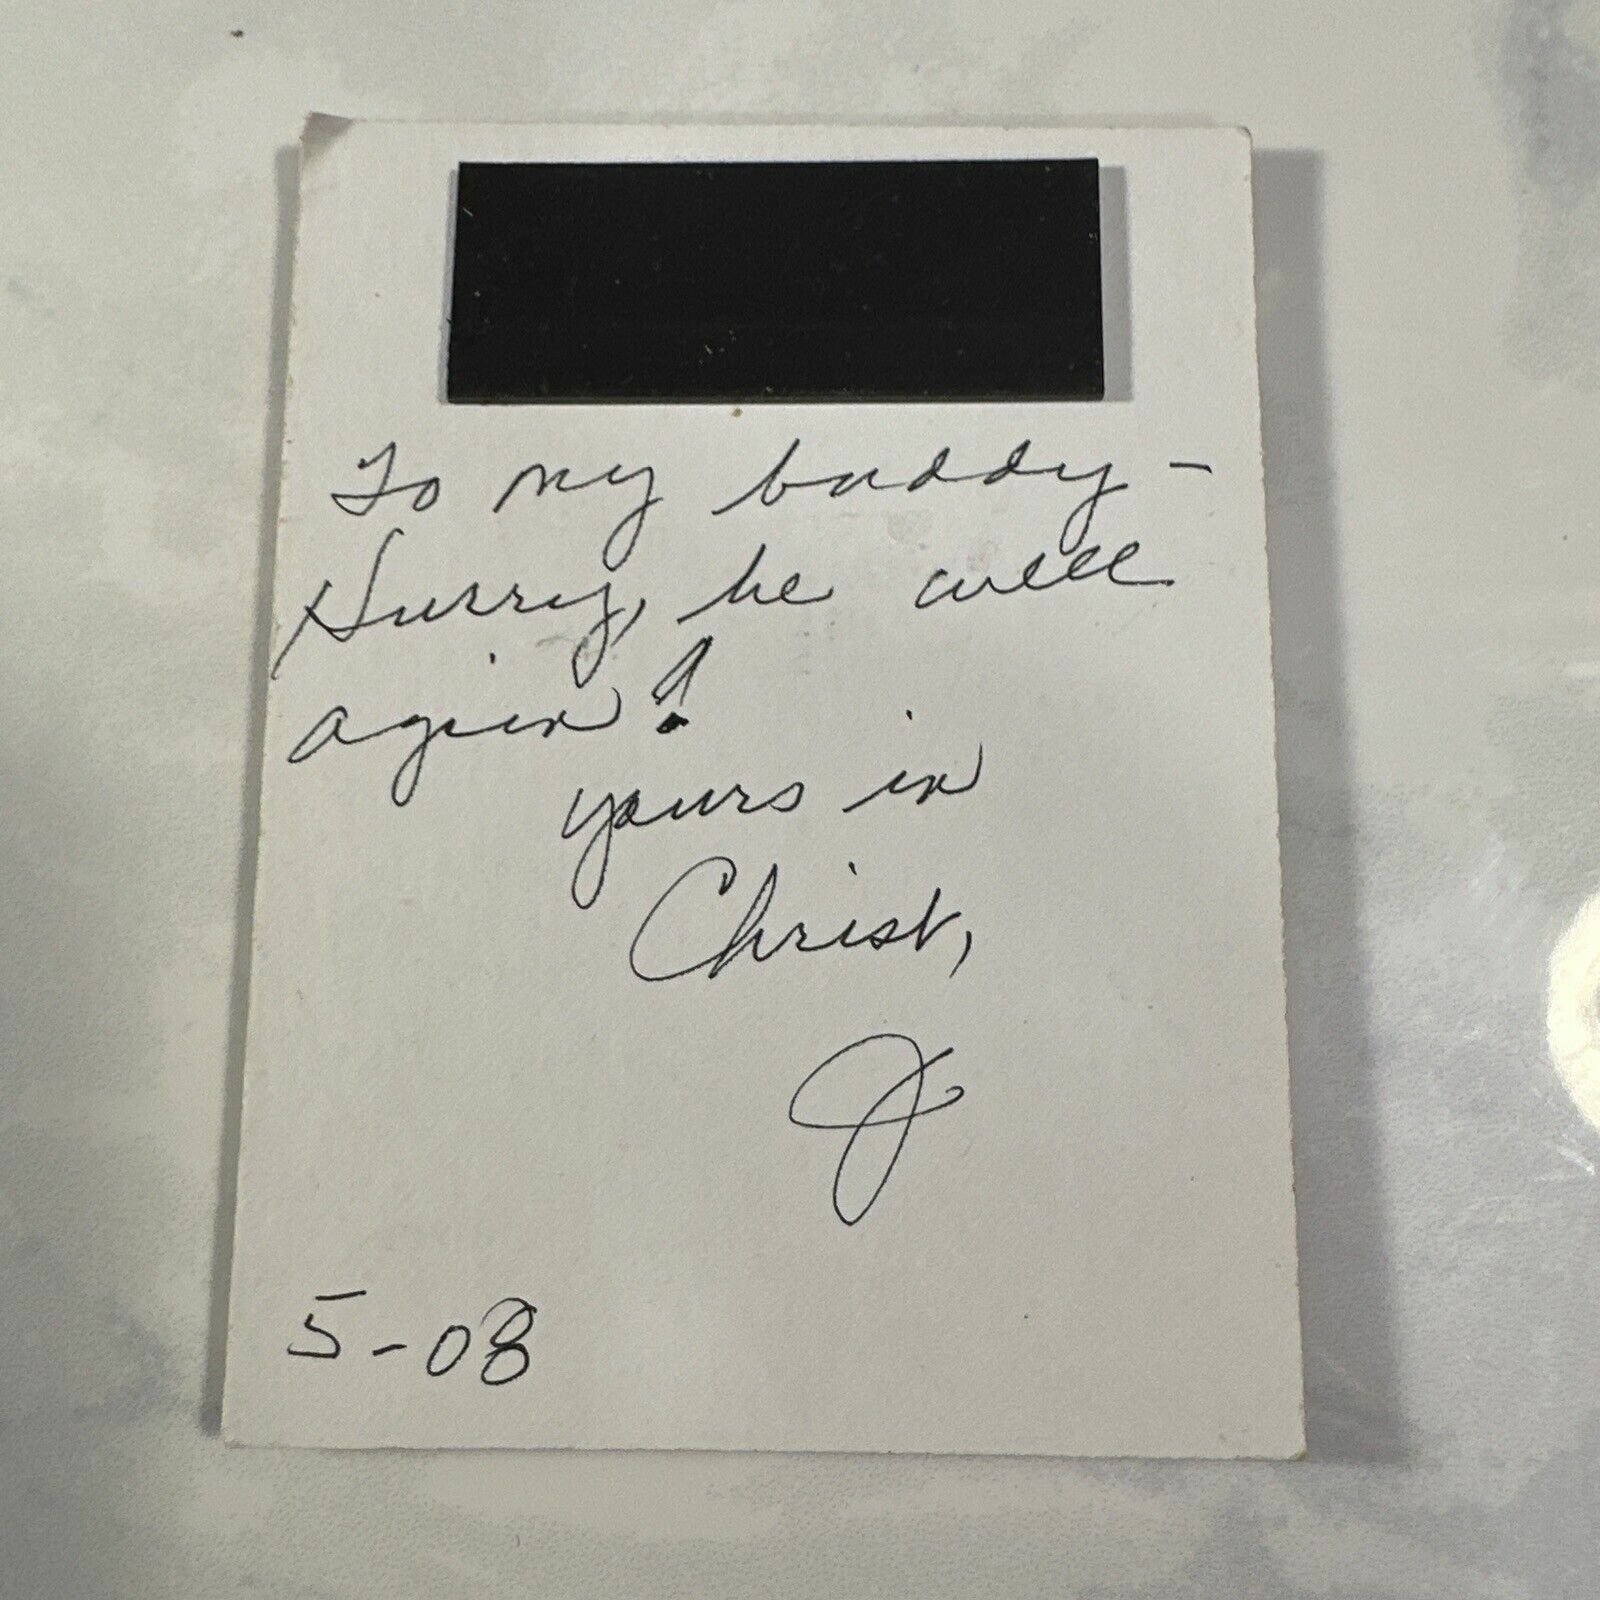 To my buddy -
Hurry, be well
again!
yours in
Christ,
J
5-08